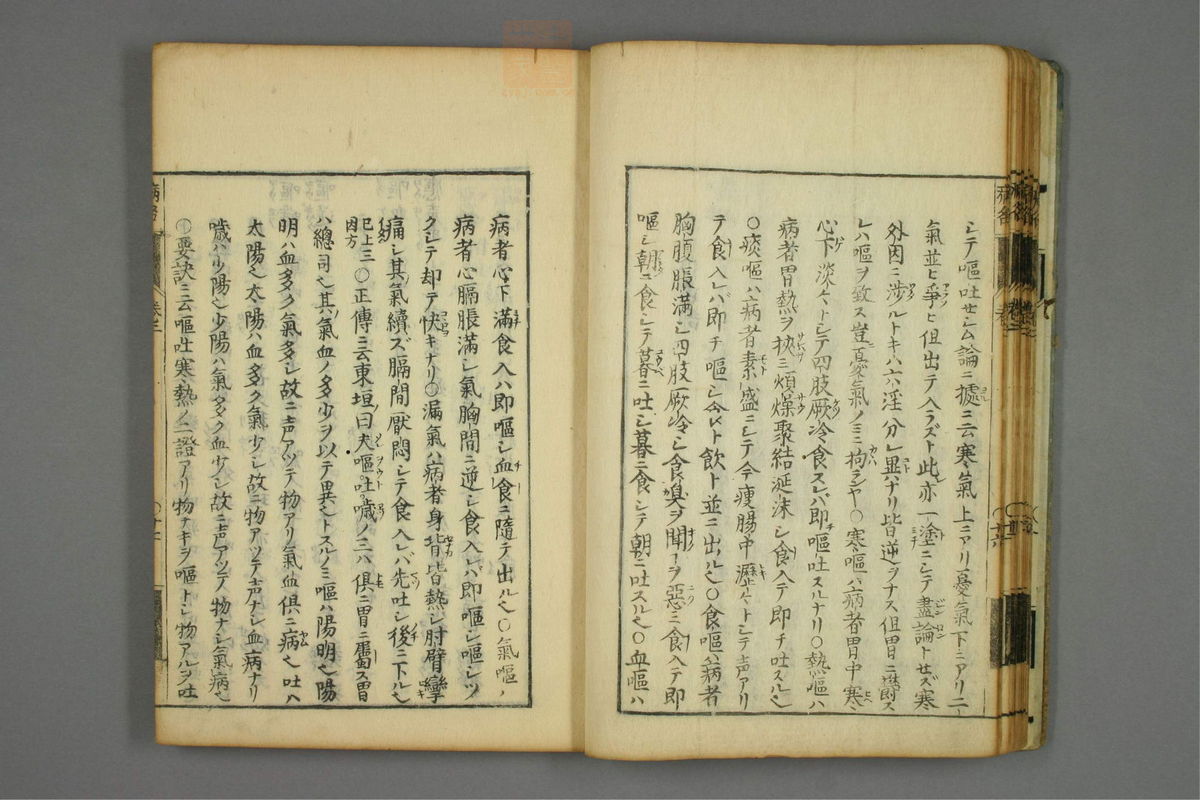 シテ嘔吐セシム論ニ據ニ云寒氣上ニアリ憂氣下ニアリ二ノ
氣並ヒ爭ヒ但出テ入ラズト此亦一塗ニシテ盡論トセズ寒
外因ニ涉ルトキハ六淫分レ異ナリ皆逆ヲナス但胃ニ
レハ嘔ヲ致ス豈憂氣ノミニ拘ランヤ○寒嘔ハ病者胃中寒
心下淡々トシテ四肢厥冷食スレバ即嘔吐スルナリ○熱嘔ハ
病者胃熱ヲ挾ミ煩燥聚結涎沫シ食入テ即チ吐スル也
○痰嘔ハ病者素盛ニシテ今瘦腸中瀝々トシテ声アリ
テ食入レバ即チ嘔シ食ト飲ト並ニ出ル也○食嘔ハ病者
胸腹脹滿シ四肢厥冷シ食臭ヲ聞ーヲ惡ミ食入テ即
嘔シ朝ニ食シテ暮ニ吐シ暮ニ食シテ朝ニ吐スル也○血嘔ハ
病者心下滿食入ハ即嘔シ血食ニ隨テ出ル也○氣嘔ハ
病者心膈脹滿シ氣胸間ニ逆シ食入レバ即嘔シ嘔シツ
クシテ却テ快キナリ○漏氣ハ病者身背皆熱シ肘臂攣
痛シ其氣續ズ膈間厭悶シテ食入レバ先吐シ後ニ下ル也
已上三因方○正傳ニ云東垣曰夫嘔吐噦ノ三ハ俱ニ胃ニ屬ス胃
ハ總司也其氣血ノ多少ヲ以テ異也トスルノミ嘔ハ陽明也陽
明ハ血多ク氣多シ故ニ声アツテ物アリ氣血俱ニ病也吐ハ
太陽也太陽ハ血多ク氣少シ故ニ物アツテ声ナシ血病ナリ
噦ハ少陽也少陽ハ氣多ク血少シ故ニ声アツテ物ナシ氣病也
○要訣ニ云嘔吐寒熱ノ二證アリ物ナキヲ嘔トシ物アルヲ吐